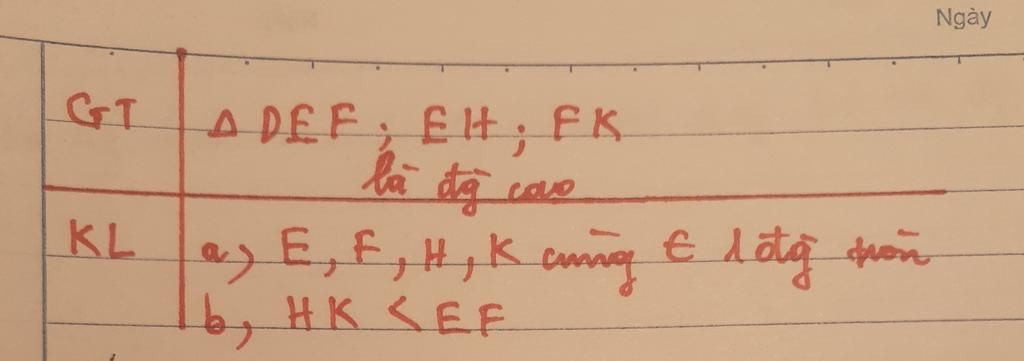 Ngày
GT Δ DEF ; EH ; FK
là đg̀ cao
KL a, E, F, H, K cùng ∈ 1 đg̀ tròn
b, HK < EF